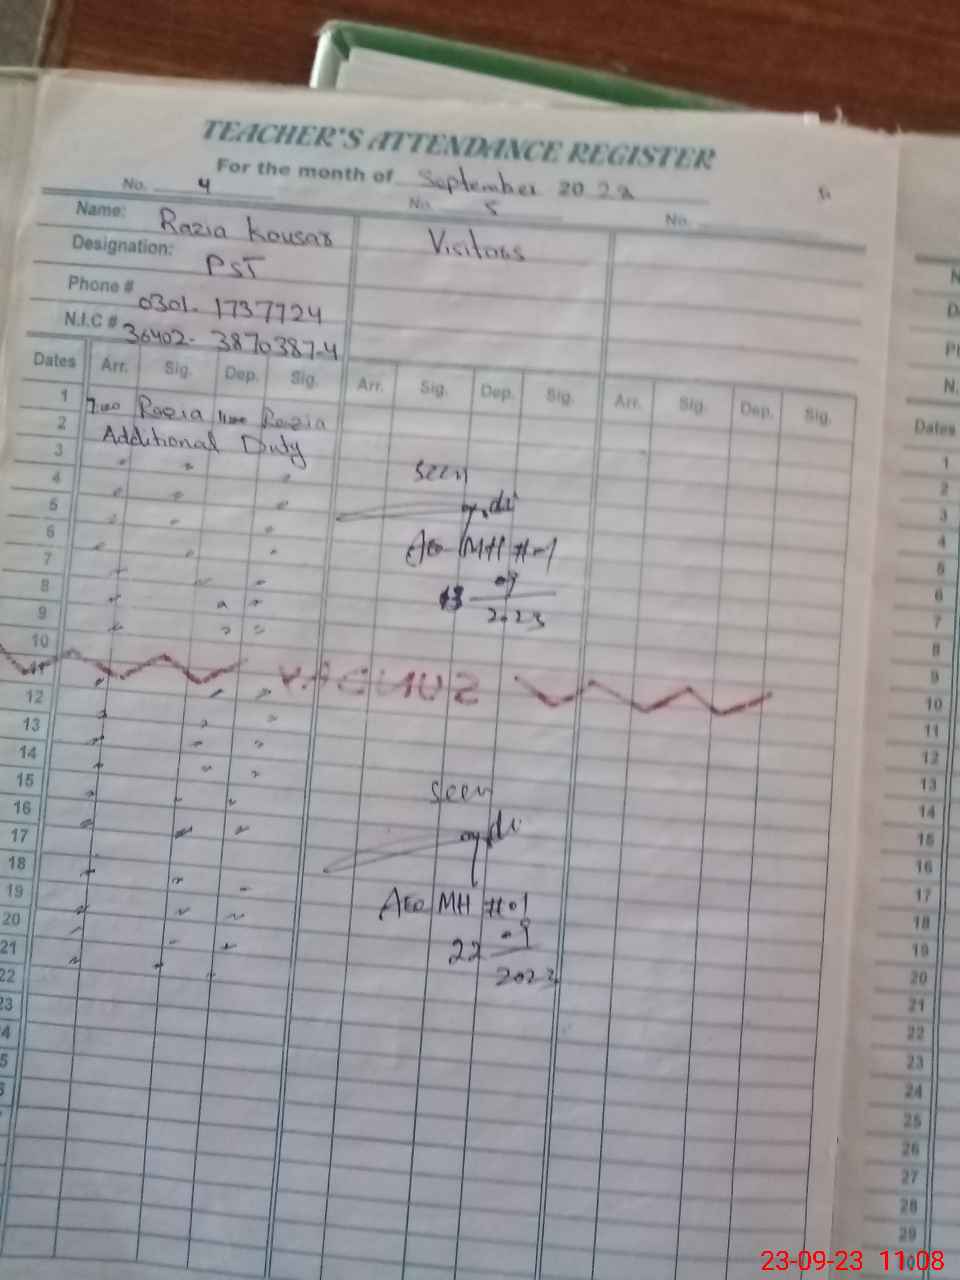 TEACHER'S ATTENDANCE REGISTER
For the month of September 2023
No. 4 No. 5 No.
Name: Razia Kousar Visitors
Designation: PST
Phone # 0301-1737724
N.I.C # 36402-3870387-4
Dates Arr. Sig. Dep. Sig. Arr. Sig. Dep. Sig. Arr. Sig. Dep. Sig.
1 Razia Razia
2 Additional Duty
3
4 seen
5
6
7 AEO MH #01
8 13 09
9 2023
10
11 SUNDAY
12
13
14
15 seen
16
17
18
19 AEO MH #01
20 09
21 22
22 2023
23
Dates
1
2
3
4
5
6
7
8
9
10
11
12
13
14
15
16
17
18
19
20
21
22
23
24
25
26
27
28
29
23-09-23 11:08